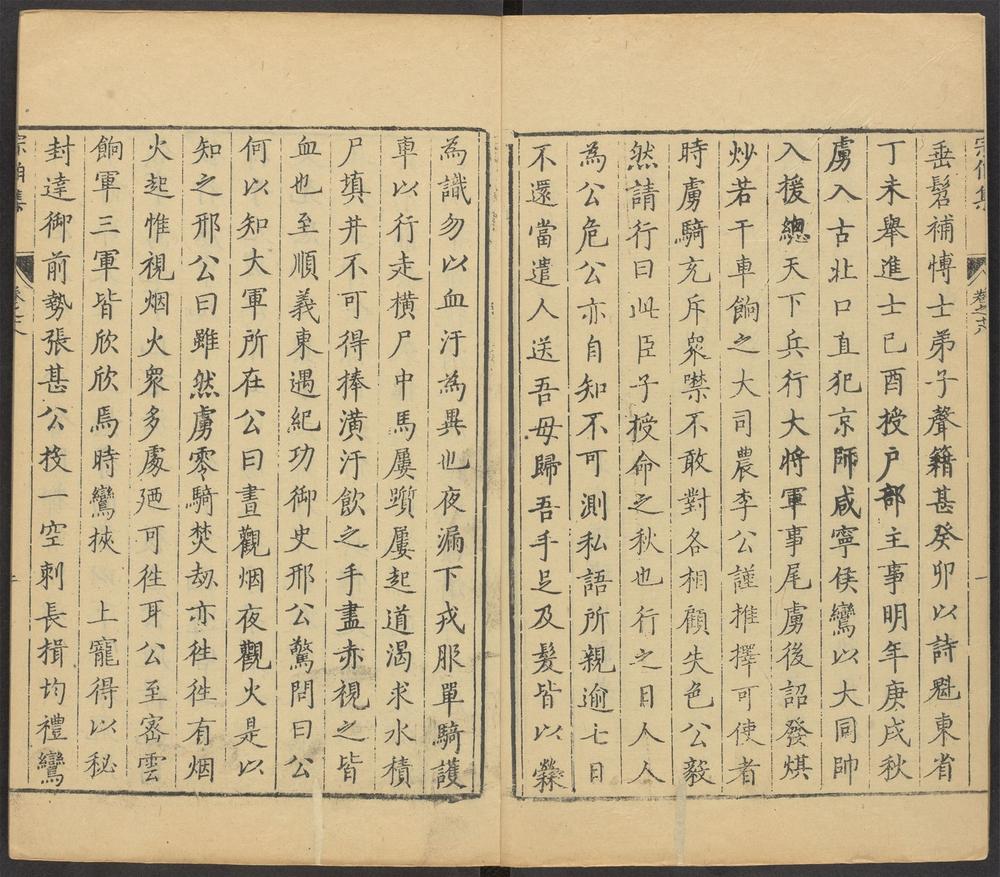 垂髫補博士弟子聲籍甚癸卯以詩魁東省
丁未舉進士己酉授户部主事明年庚戌秋
虜入古北口直犯京師咸寧侯鸞以大同帥
入援總天下兵行大將軍事尾虜後詔發煤
炒若干車餉之大司農李公謹推擇可使者
時虜騎充斥衆噤不敢對各相顧失色公毅
然請行曰此臣子授命之秋也行之日人人
為公危公亦自知不可測私語所親逾七日
不還當遣人送吾母歸吾手足及髮皆以
為識勿以血汙為異也夜漏下戎服單騎護
車以行走横尸中馬屢躓屢起道渴求水積
尸填井不可得捧潢汙飲之手盡赤視之皆
血也至順義東遇紀功御史邢公驚問曰公
何以知大軍所在公曰晝觀烟夜觀火是以
知之邢公曰雖然虜零騎焚劫亦徃徃有烟
火起惟視烟火衆多處廼可徃耳公至密雲
餉軍三軍皆欣欣焉時鸞挾 上寵得以秘
封達御前勢張甚公投一空刺長揖均禮鸞
宗伯集
卷之